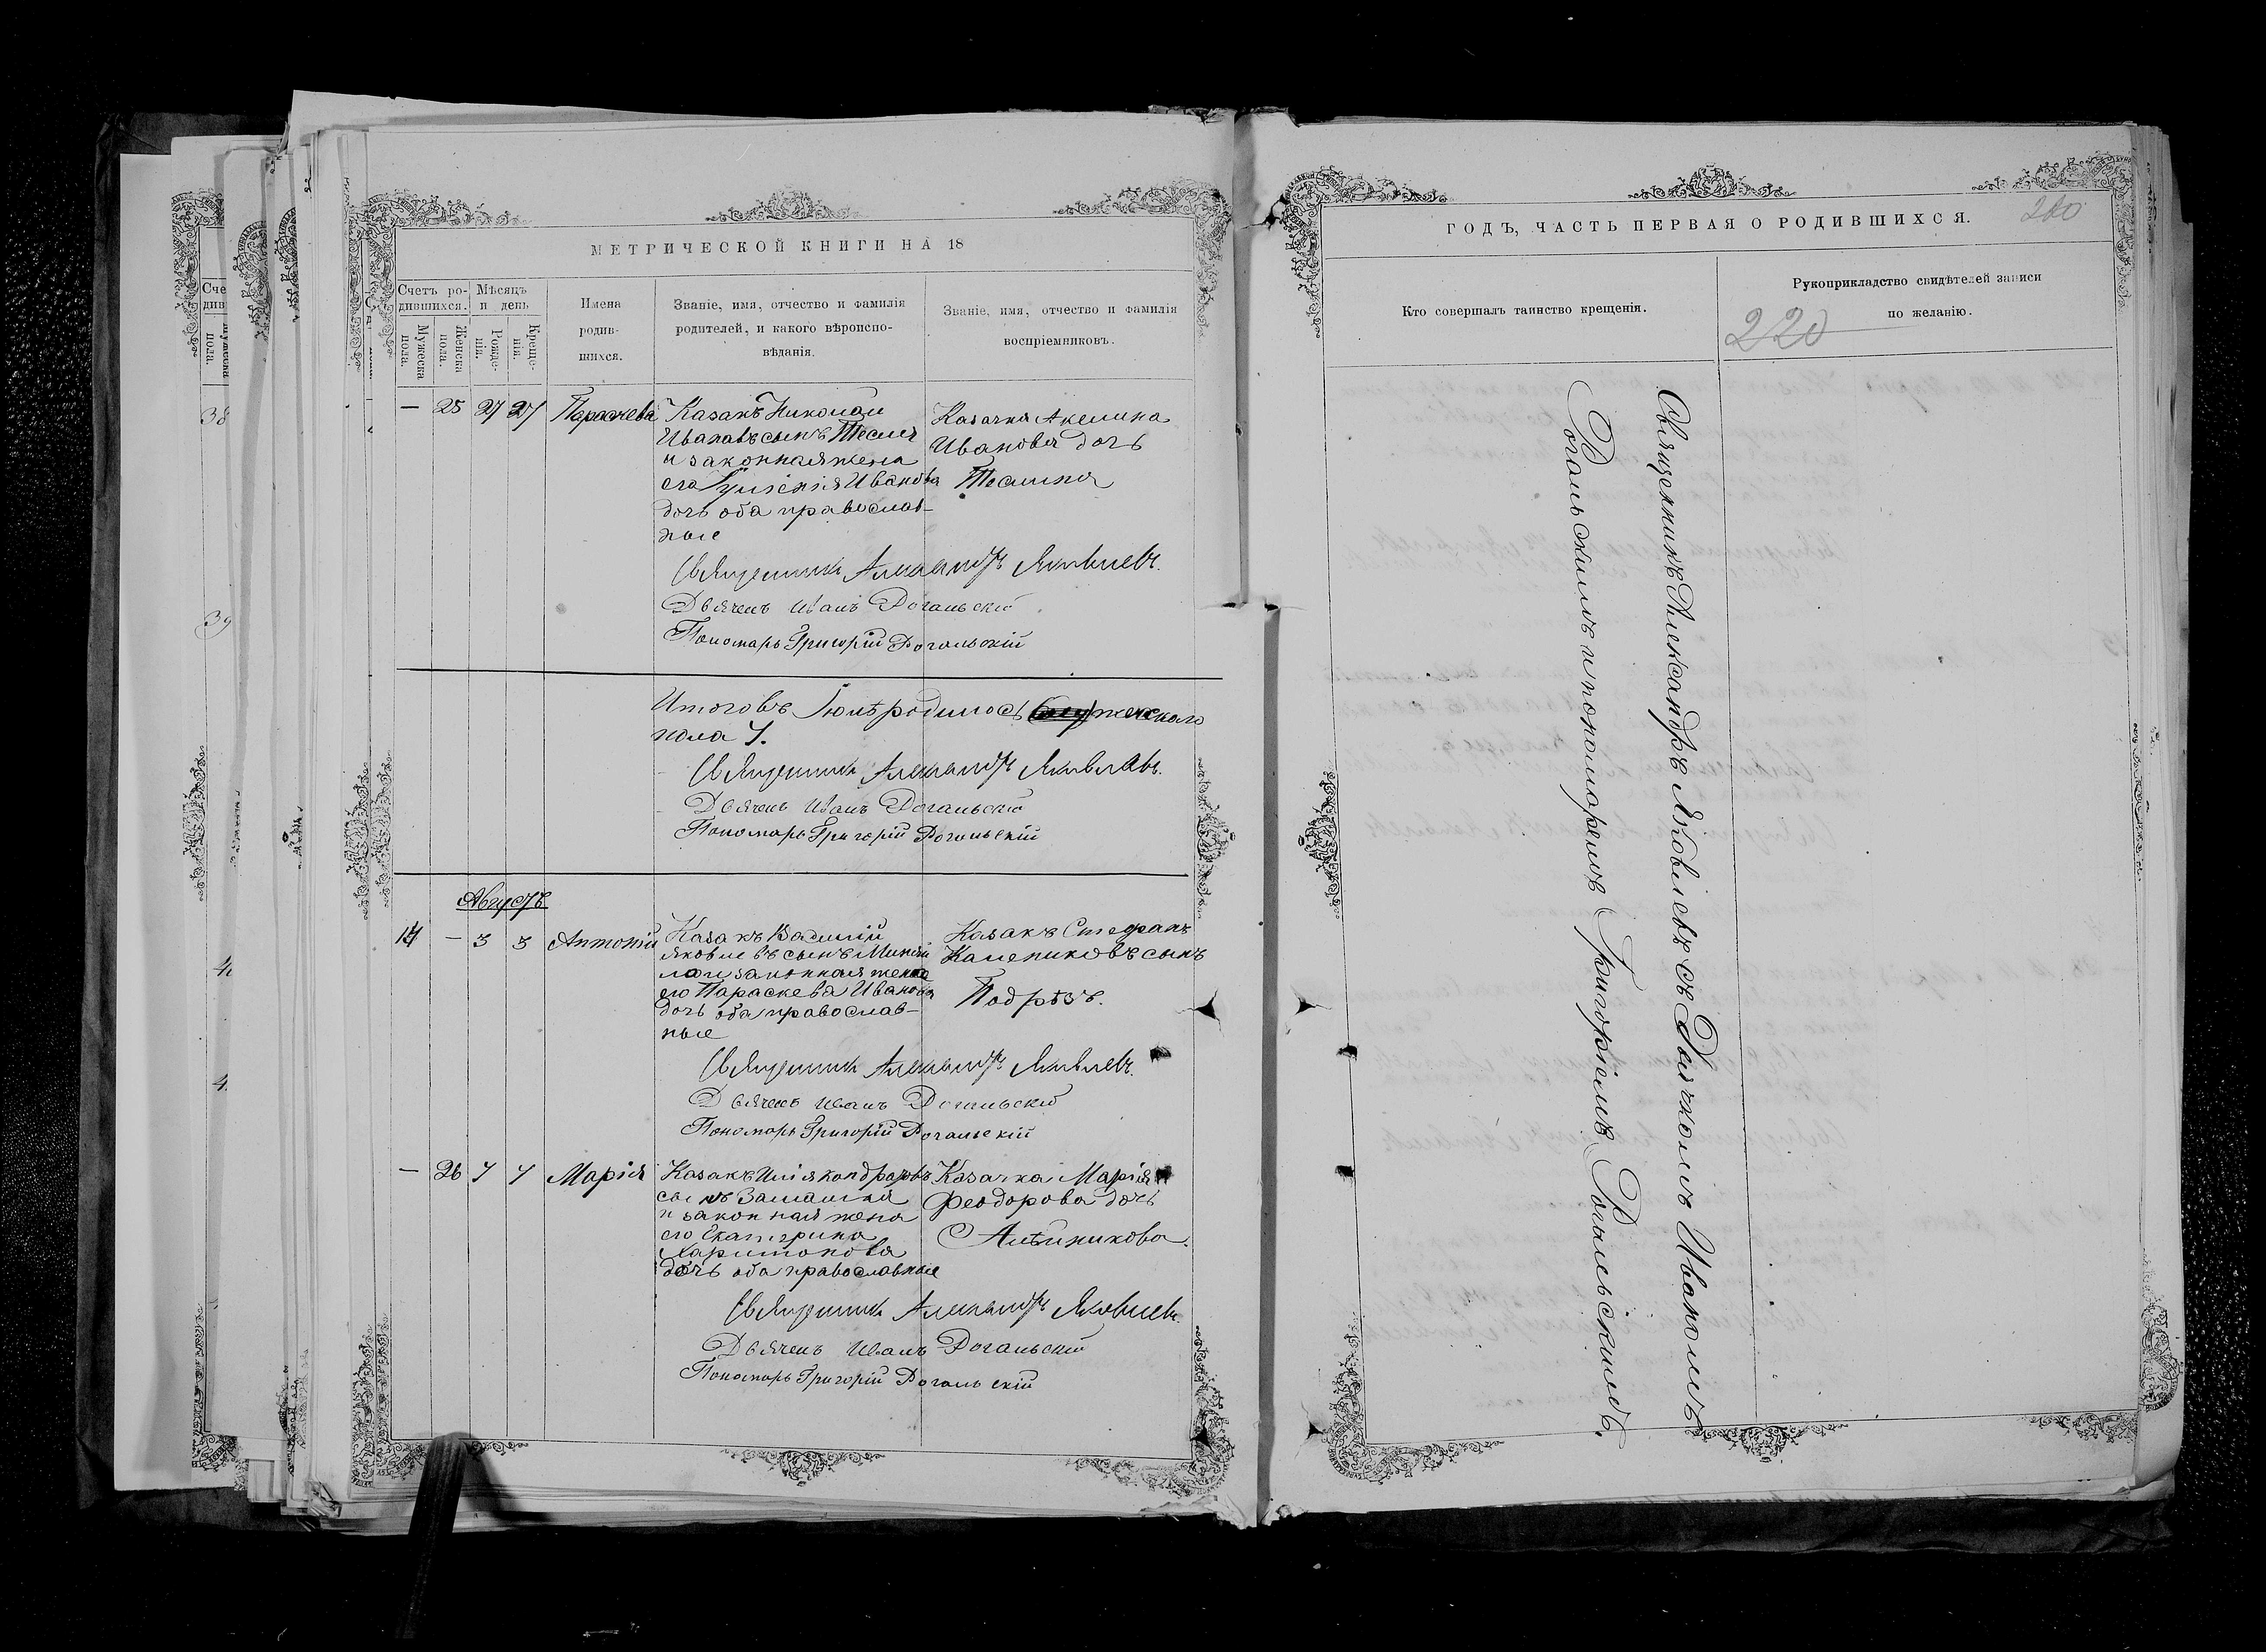 МЕТРИЧЕСКОЙ КНИГИ НА 18
Счетъ ро-
дившихся.
Мѣсяцъ
и день
Мужеска
пола.
Женска
пола.
Рожде-
нія.
Креще-
нія.
Имена
родив-
шихся.
Званіе, имя, отчество и фамилія
родителей, и какого вѣроиспо-
вѣданія.
Званіе, имя, отчество и фамилія
воспріемниковъ.
— 25 27 27
Казакъ Николай
Ивановъ сынъ Тесля
и законная жена
его Иванова
дочь оба православ-
ные
Казачка Акелина
Иванова дочь
Теслина
Священникъ Александръ Яковлевъ.
Дьячекъ Иванъ Рогальскій
Пономарь Григорій Рогальскій
Итого въ Іюлѣ родилось женскаго
пола
Священникъ Александръ Яковлевъ.
Дьячекъ Иванъ Рогальскій
Пономарь Григорій Рогальскій
Августъ
— 3 3 Антоній
Казакъ Василій
Яковлевъ сынъ
законная жена
его Параскева Иванова
дочь оба православ-
ные
Казакъ Стефанъ
сынъ
Подрѣзъ.
Священникъ Александръ Яковлевъ.
Дьячекъ Иванъ Рогальскій
Пономарь Григорій Рогальскій
— 26 7 7 Марія
Казакъ Илія Кондратовъ
сынъ
и законная жена
его Екатерина
Харитонова
дочь оба православные
Казачка Марія
Феодорова дочь
Священникъ Александръ Яковлевъ.
Дьячекъ Иванъ Рогальскій
Пономарь Григорій Рогальскій
ГОДЪ, ЧАСТЬ ПЕРВАЯ О РОДИВШИХСЯ.
Кто совершалъ таинство крещенія.
Рукоприкладство свидѣтелей записи
по желанію.
220
Священникъ Александръ Яковлевъ съ Дьячкомъ Иваномъ
Рогальскимъ и пономаремъ Григоріемъ Рогальскимъ.
38
39